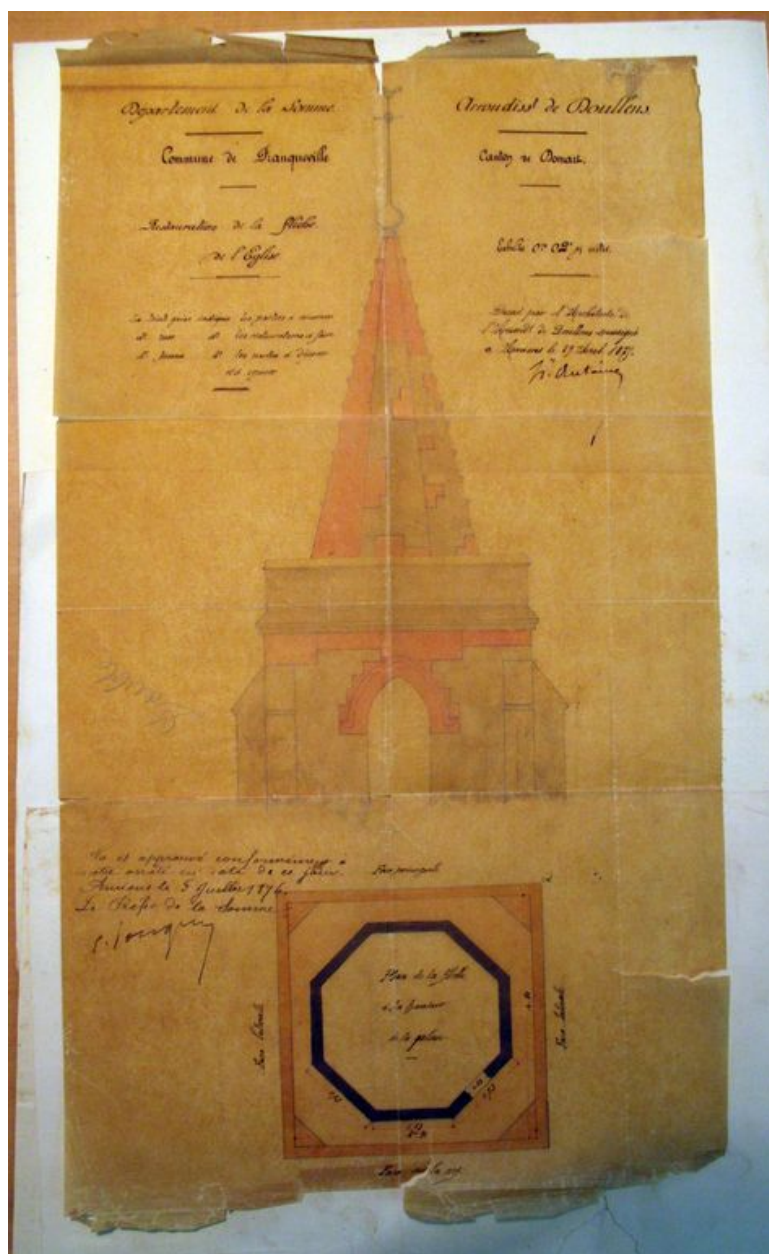 Département de la Somme.
Commune de Franqueville
Restauration de la flèche
de l'Eglise
La teinte grise indique les parties à conserver
dº rose dº les restaurations à faire
dº dº les parties à
Arrondissᵗ de Doullens.
Canton de Domart.
Echelle 0ᵐ 02ᶜ p. mètre.
Dressé par l'Architecte de
l'Arrondᵗ de Doullens soussigné
à le 27 Avril
Vu et approuvé conformément à
notre arrêté en date de ce jour.
Amiens le 5 Juillet 1876.
Le Préfet de la Somme
Face principale
Face latérale
Plan de la flèche
à la hauteur
de la galerie
Face latérale
Face sur la nef